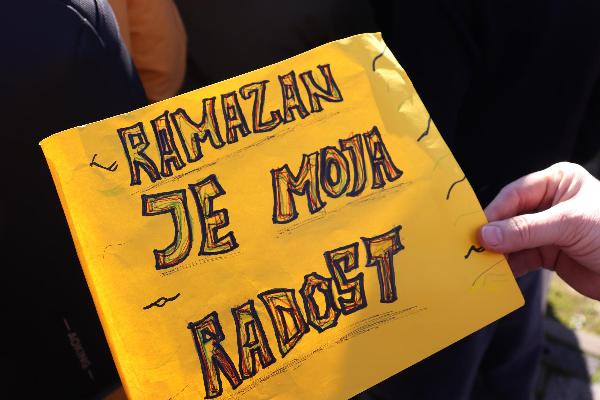 RAMAZAN
JE MOJA
RADOST